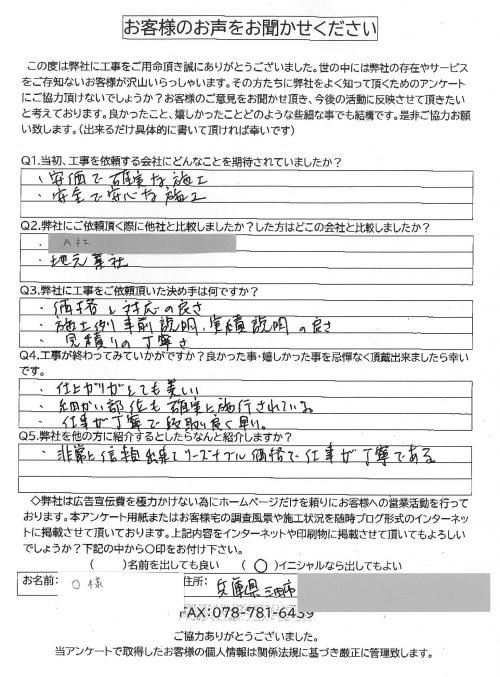 お客様のお声をお聞かせください
この度は弊社に工事をご用命頂き誠にありがとうございました。世の中には弊社の存在やサービス
をご存知ないお客様が沢山いらっしゃいます。その方たちに弊社をよく知って頂くためのアンケート
にご協力頂けないでしょうか?お客様のご意見をお聞かせ頂き、今後の活動に反映させて頂きたい
と考えております。良かったこと、嬉しかったことどのような些細な事でも結構です。是非ご協力お願
い致します。(出来るだけ具体的に書いて頂ければ幸いです)
Q1.当初、工事を依頼する会社にどんなことを期待されていましたか?
・安価で確実な施工
・安全で安心な施工
Q2.弊社にご依頼頂く際に他社と比較しましたか?した方はどこの会社と比較しましたか?
・A社
・地元業社
Q3.弊社に工事をご依頼頂いた決め手は何ですか?
・価格と対応の良さ
・施工例 事前説明、実績説明の良さ
・見積りの丁寧さ
Q4.工事が終わってみていかがですか?良かった事・嬉しかった事を忌憚なく頂戴出来ましたら幸い
です。
・仕上がりがとても美しい
・細かい部位も確実に施行されている。
・仕事が丁寧で段取り良く早い。
Q5.弊社を他の方に紹介するとしたらなんと紹介しますか?
・非常に信頼出来てリーズナブル価格で仕事が丁寧である
◇弊社は広告宣伝費を極力かけない為にホームページだけを頼りにお客様への営業活動を行って
おります。本アンケート用紙またはお客様宅の調査風景や施工状況を随時ブログ形式のインターネッ
トに掲載させて頂いております。上記内容をインターネットや印刷物に掲載させて頂いてもよろしい
でしょうか?下記の中から〇印をお付け下さい。
( )名前を出しても良い (〇)イニシャルなら出してもよい
お名前: O様 住所: 兵庫県三田市
FAX:078-781-6439
ご協力ありがとうございました。
当アンケートで取得したお客様の個人情報は関係法規に基づき厳正に管理致します。